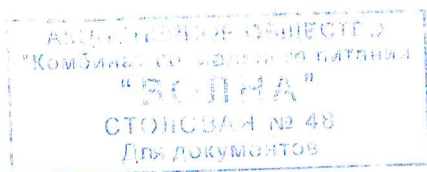 АКЦИОНЕРНОЕ ОБЩЕСТВО
"Комбинат питания
СТОЛОВАЯ № 48
Для документов